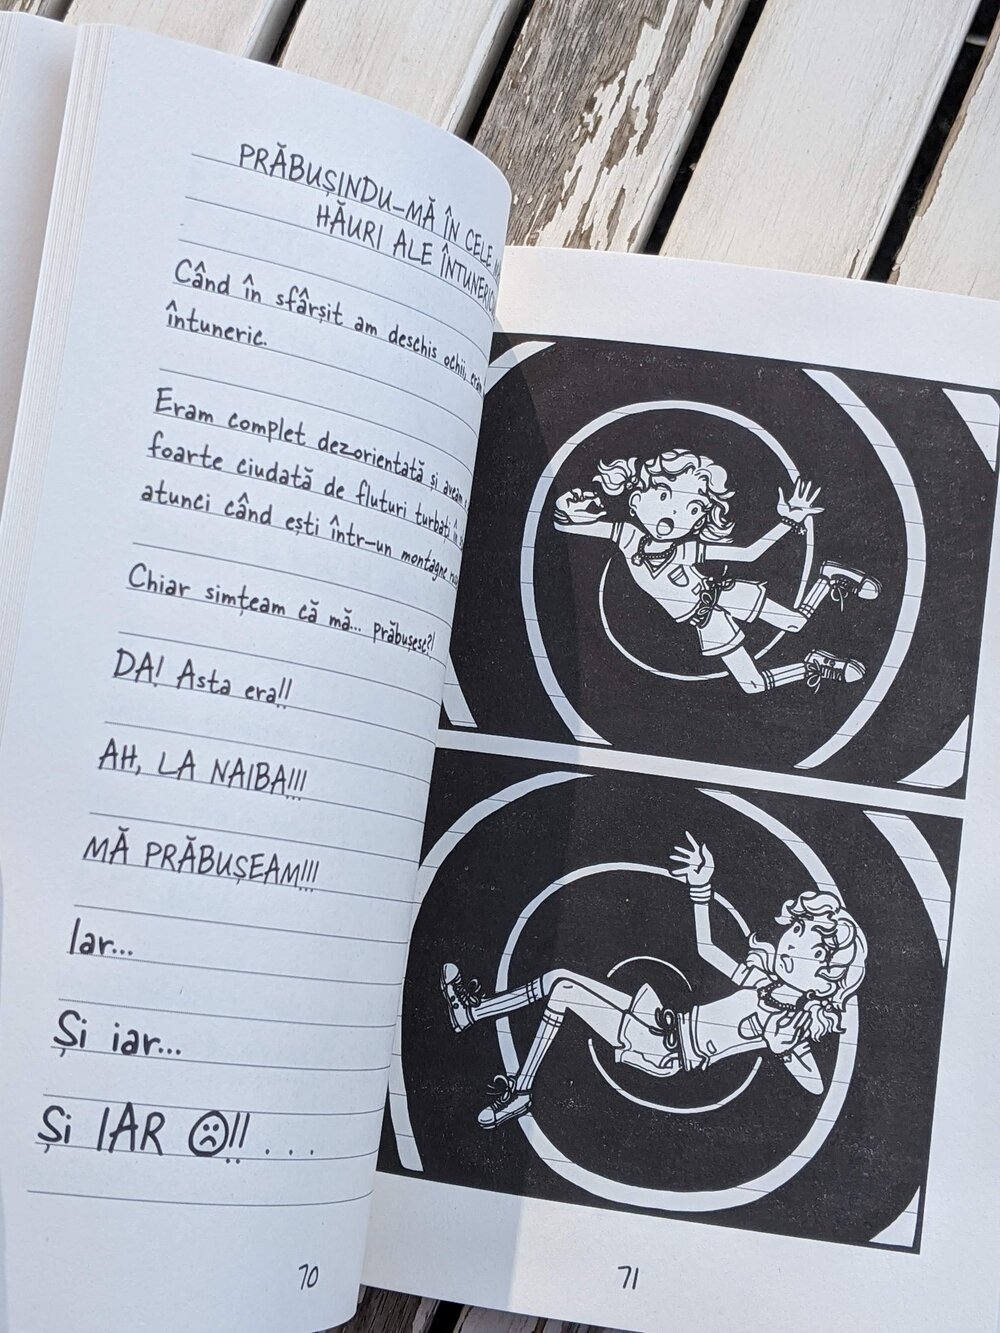 PRĂBUȘINDU-MĂ ÎN CELE
HĂURI ALE ÎNTUNERIC
Când în sfârșit am deschis ochii,
întuneric.
Eram complet dezorientată și aveam
foarte ciudată de fluturi turbați în
atunci când ești într-un montagne
Chiar simțeam că mă... prăbușesc?!
DA! Asta era!!
AH, LA NAIBA!!!
MĂ PRĂBUȘEAM!!!
Iar...
Și iar...
Și IAR ☹!! . . .
70
71